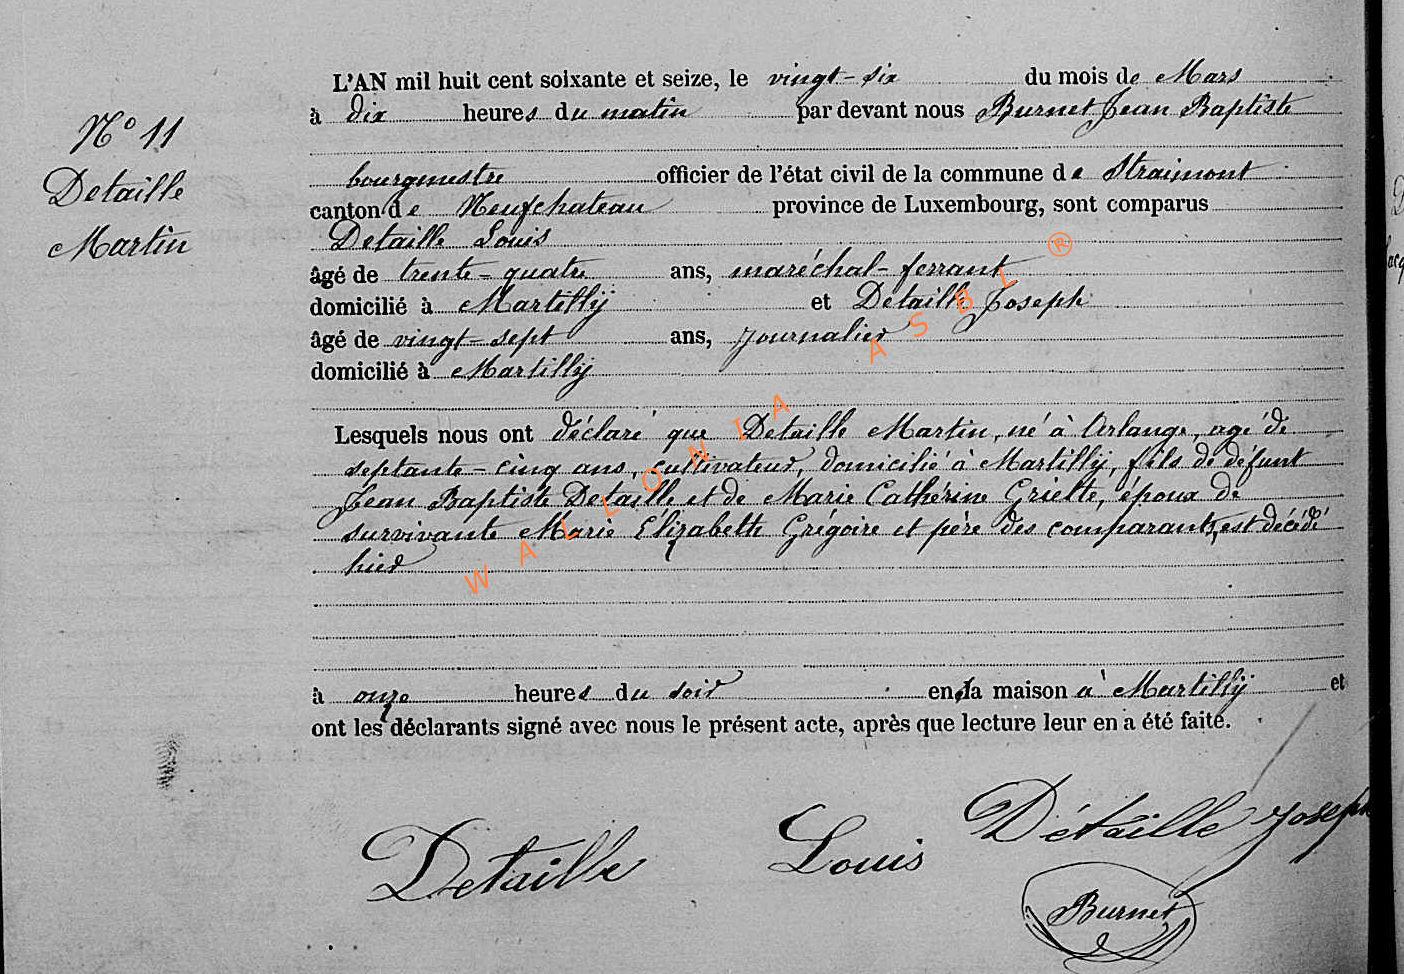 N° 11
Detaille
Martin
L'AN mil huit cent soixante et seize, le vingt-six du mois de Mars
à dix heures du matin par devant nous Burnet Jean Baptiste
bourgmestre officier de l'état civil de la commune de Straimont
canton de Neufchateau province de Luxembourg, sont comparus
Detaille Louis
âgé de trente-quatre ans, maréchal-ferrant
domicilié à Martilly et Detaille Joseph
âgé de vingt-sept ans, journalier
domicilié à Martilly
Lesquels nous ont déclaré que Detaille Martin, né à Arlange, agé de
septante-cinq ans, cultivateur, domicilié à Martilly, fils de défunt
Jean Baptiste Detaille et de Marie Cathérine Grielte, époux de
survivante Marie Élizabette Grégoire et père des comparants, est décédé
hier
à onze heures du soir en la maison à Martilly et
ont les déclarants signé avec nous le présent acte, après que lecture leur en a été faite.
Detaille Louis Détaille Joseph
Burnet
WALLONIA ASBL ®